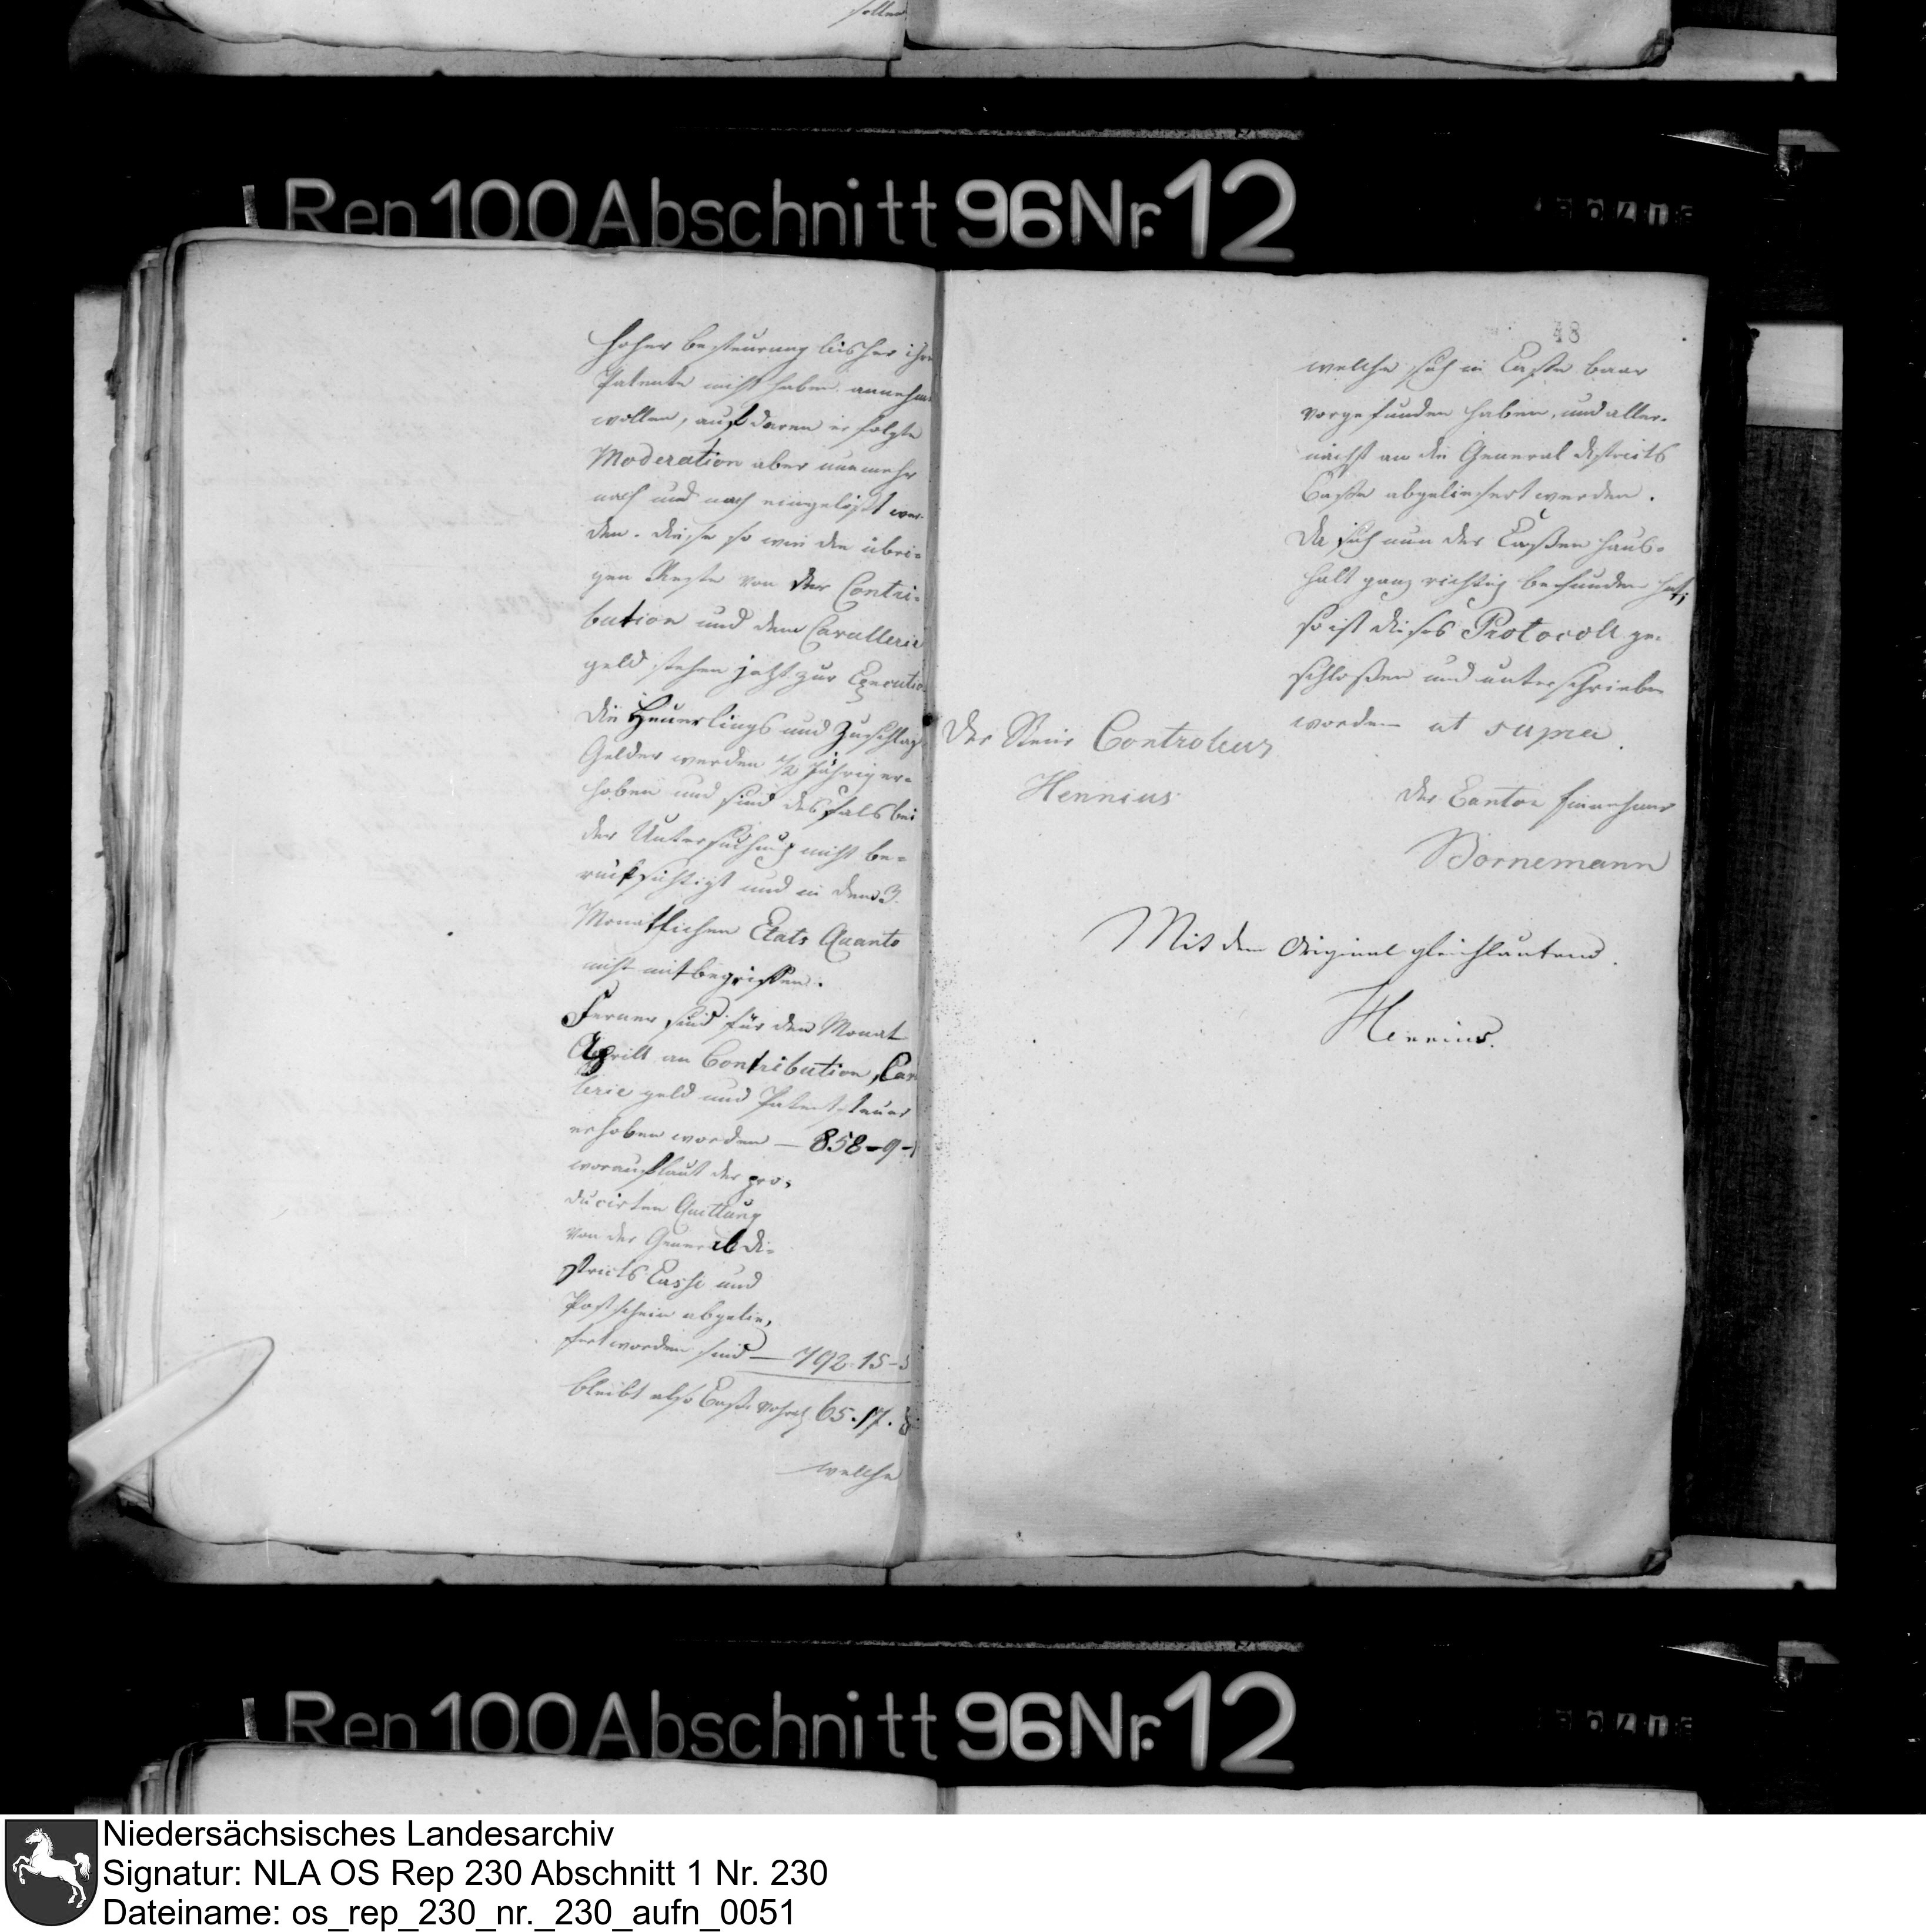 sollen
Rep 100 Abschnitt 96 Nr. 12
hoher besteurung bisher ihre
Patente nicht haben annehm
wollen, auf deren erfolgte
Moderation aber nunmehr
nach und nach eingelößt wer-
den. diese so wie die übri-
gen Reste von der Contri-
bution und dem Cavallerie
geld stehen jetzt zur Executio
die Heuerlings und Zuschlag
Gelder werden 1/2 Jährig er-
hoben und sind desfals bei
der Untersuchung nicht be-
rücksichtigt und in dem 3.
Monathlichen Etats Quanto
nicht mitbegriffen.
Ferner sind für den Monat
Aprill an Contribution, Cav
lerie geld und Patentsteuer
erhoben worden — 858-9-
worauf laut der pro-
ducirten Quittung
von der General di-
stricts Casse und
Postschein abgelie-
fert worden sind — 792-15-5
bleibt also Casse 65.17.8
welche
48
welche sich in Casse baar
vorgefunden haben, und aller-
nächst an die General districts
Casse abgeliefert werden.
Da sich nun der Caßen haus-
halt ganz richtig befunden hat,
so ist dieses Protocoll ge-
schloßen und unterschrieben
worden ut supra.
Der Steuer Controleur
Hennius
Der Canton Einnehmer
Bornemann
Mit dem Original gleichlautend.
Hennius.
Rep 100 Abschnitt 96 Nr. 12
Niedersächsisches Landesarchiv
Signatur: NLA OS Rep 230 Abschnitt 1 Nr. 230
Dateiname: os_rep_230_nr._230_aufn_0051